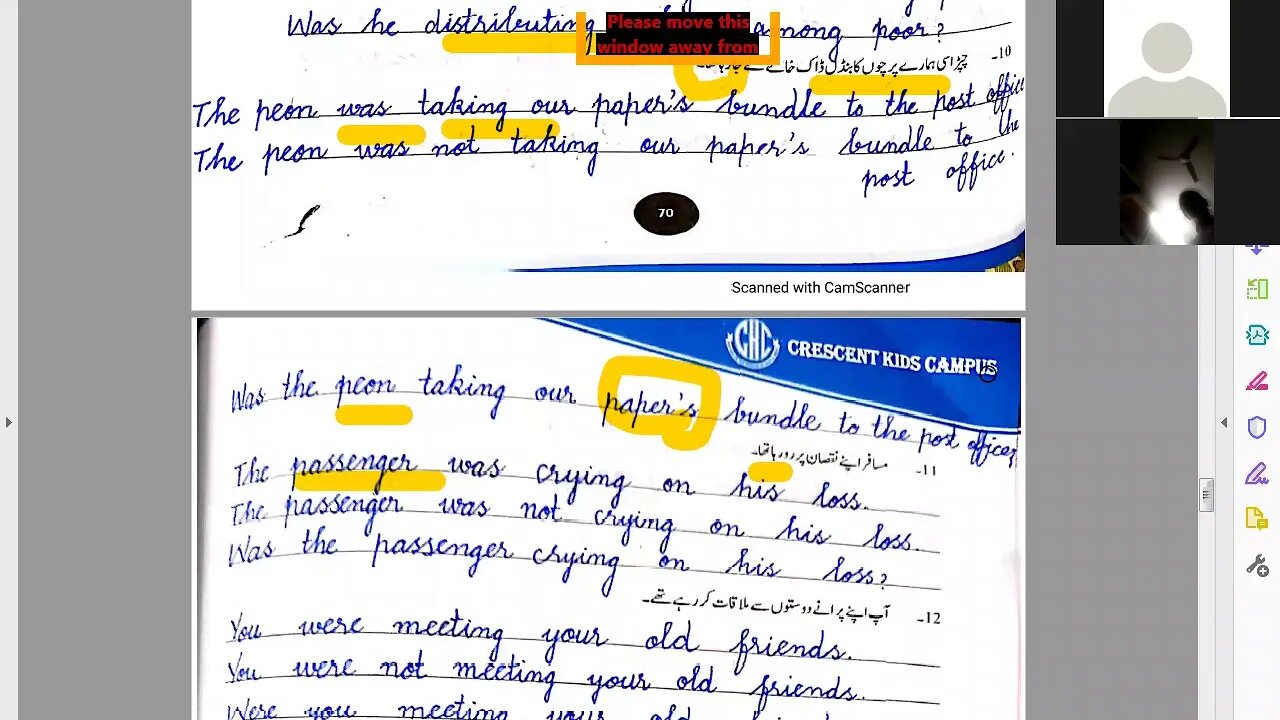 Was he distributing among poor?
Please move this
window away from
10۔ چپڑاسی ہمارے پرچوں کا بنڈل ڈاک خانے لے جا رہا تھا۔
The peon was taking our paper's bundle to the post office
The peon was not taking our paper's bundle to the
post office.
70
Scanned with CamScanner
CKC
CRESCENT KIDS CAMPUS
Was the peon taking our paper's bundle to the post office?
11۔ مسافر اپنے نقصان پر رو رہا تھا۔
The passenger was crying on his loss.
The passenger was not crying on his loss.
Was the passenger crying on his loss?
12۔ آپ اپنے پرانے دوستوں سے ملاقات کر رہے تھے۔
You were meeting your old friends.
You were not meeting your old friends.
Were you meeting your old